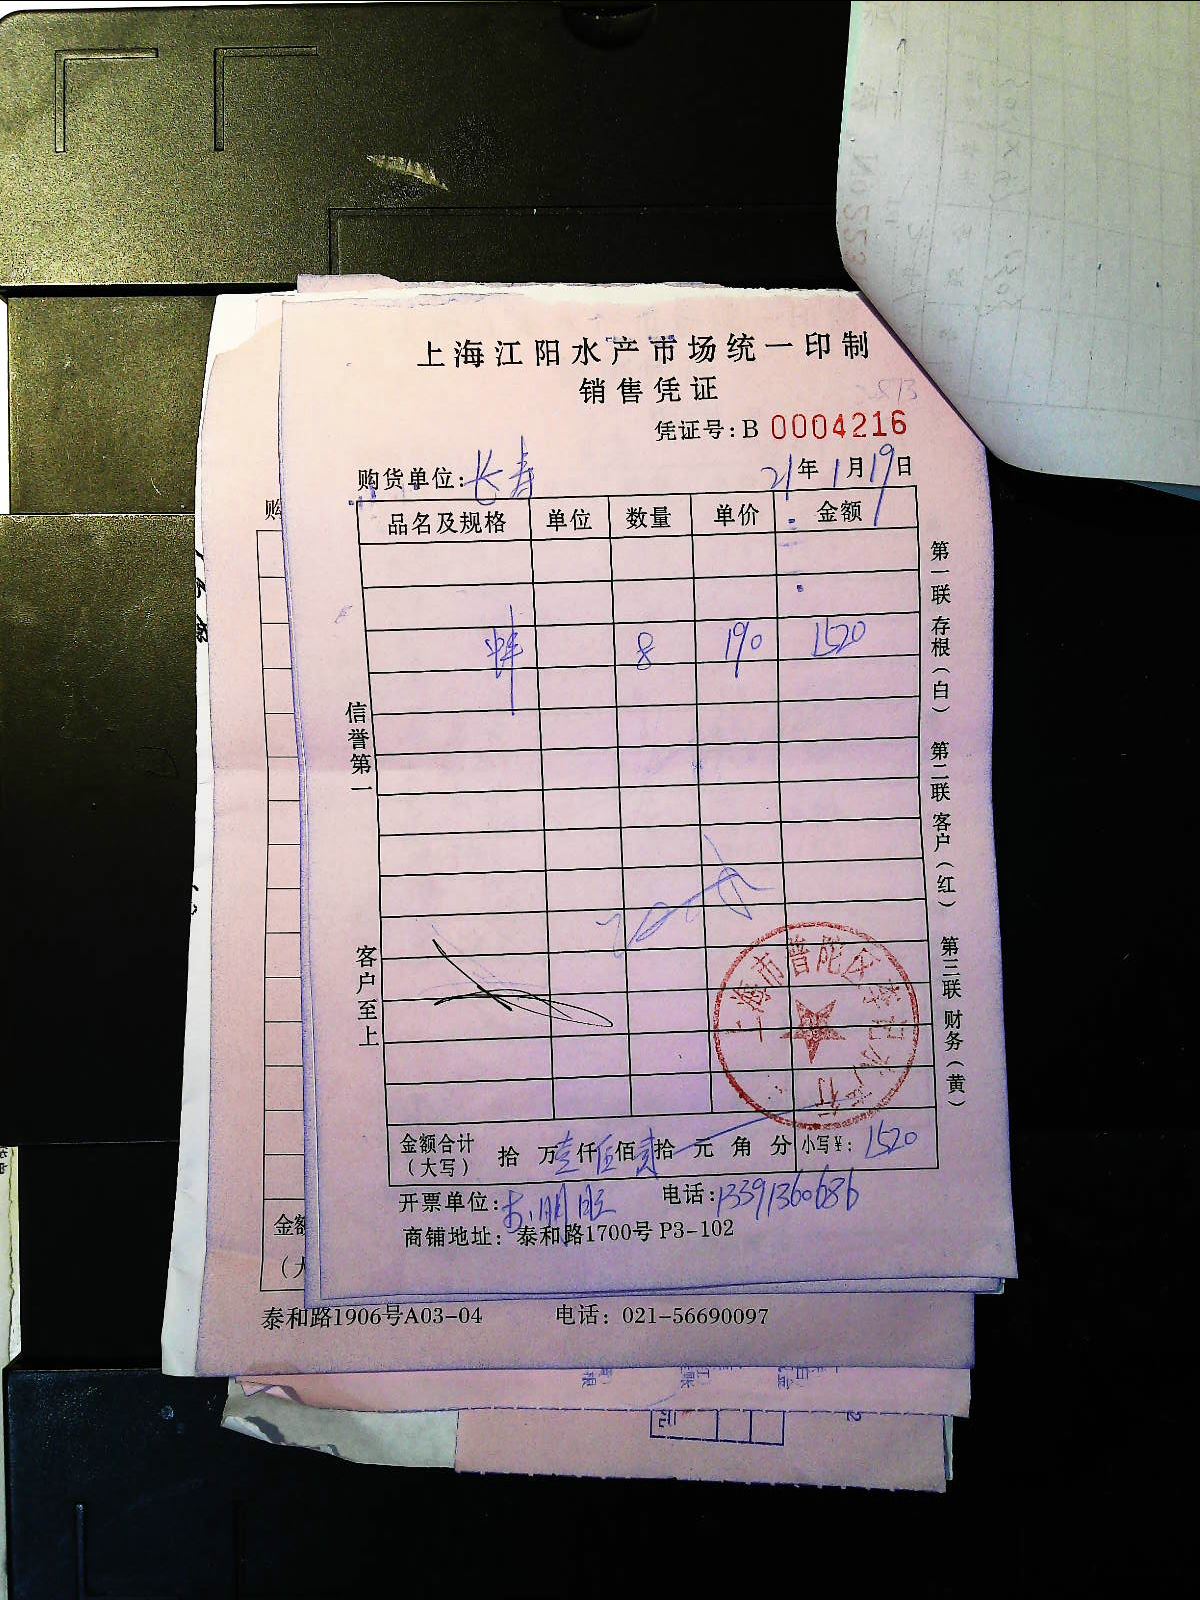 上海江阳水产市场统一印制
销售凭证
凭证号:B 0004216
购货单位:长寿 21年1月19日
品名及规格 单位 数量 单价 金额
蚌 8 190 1520
信誉第一
客户至上
第一联 存根(白) 第二联 客户(红) 第三联 财务(黄)
上海市普陀区
金额合计(大写) 拾 万壹仟伍佰贰拾 元 角 分 小写¥:1520
开票单位: 电话:13391360686
商铺地址: 泰和路1700号 P3-102
购
金额
(大
泰和路1906号A03-04 电话: 021-56690097